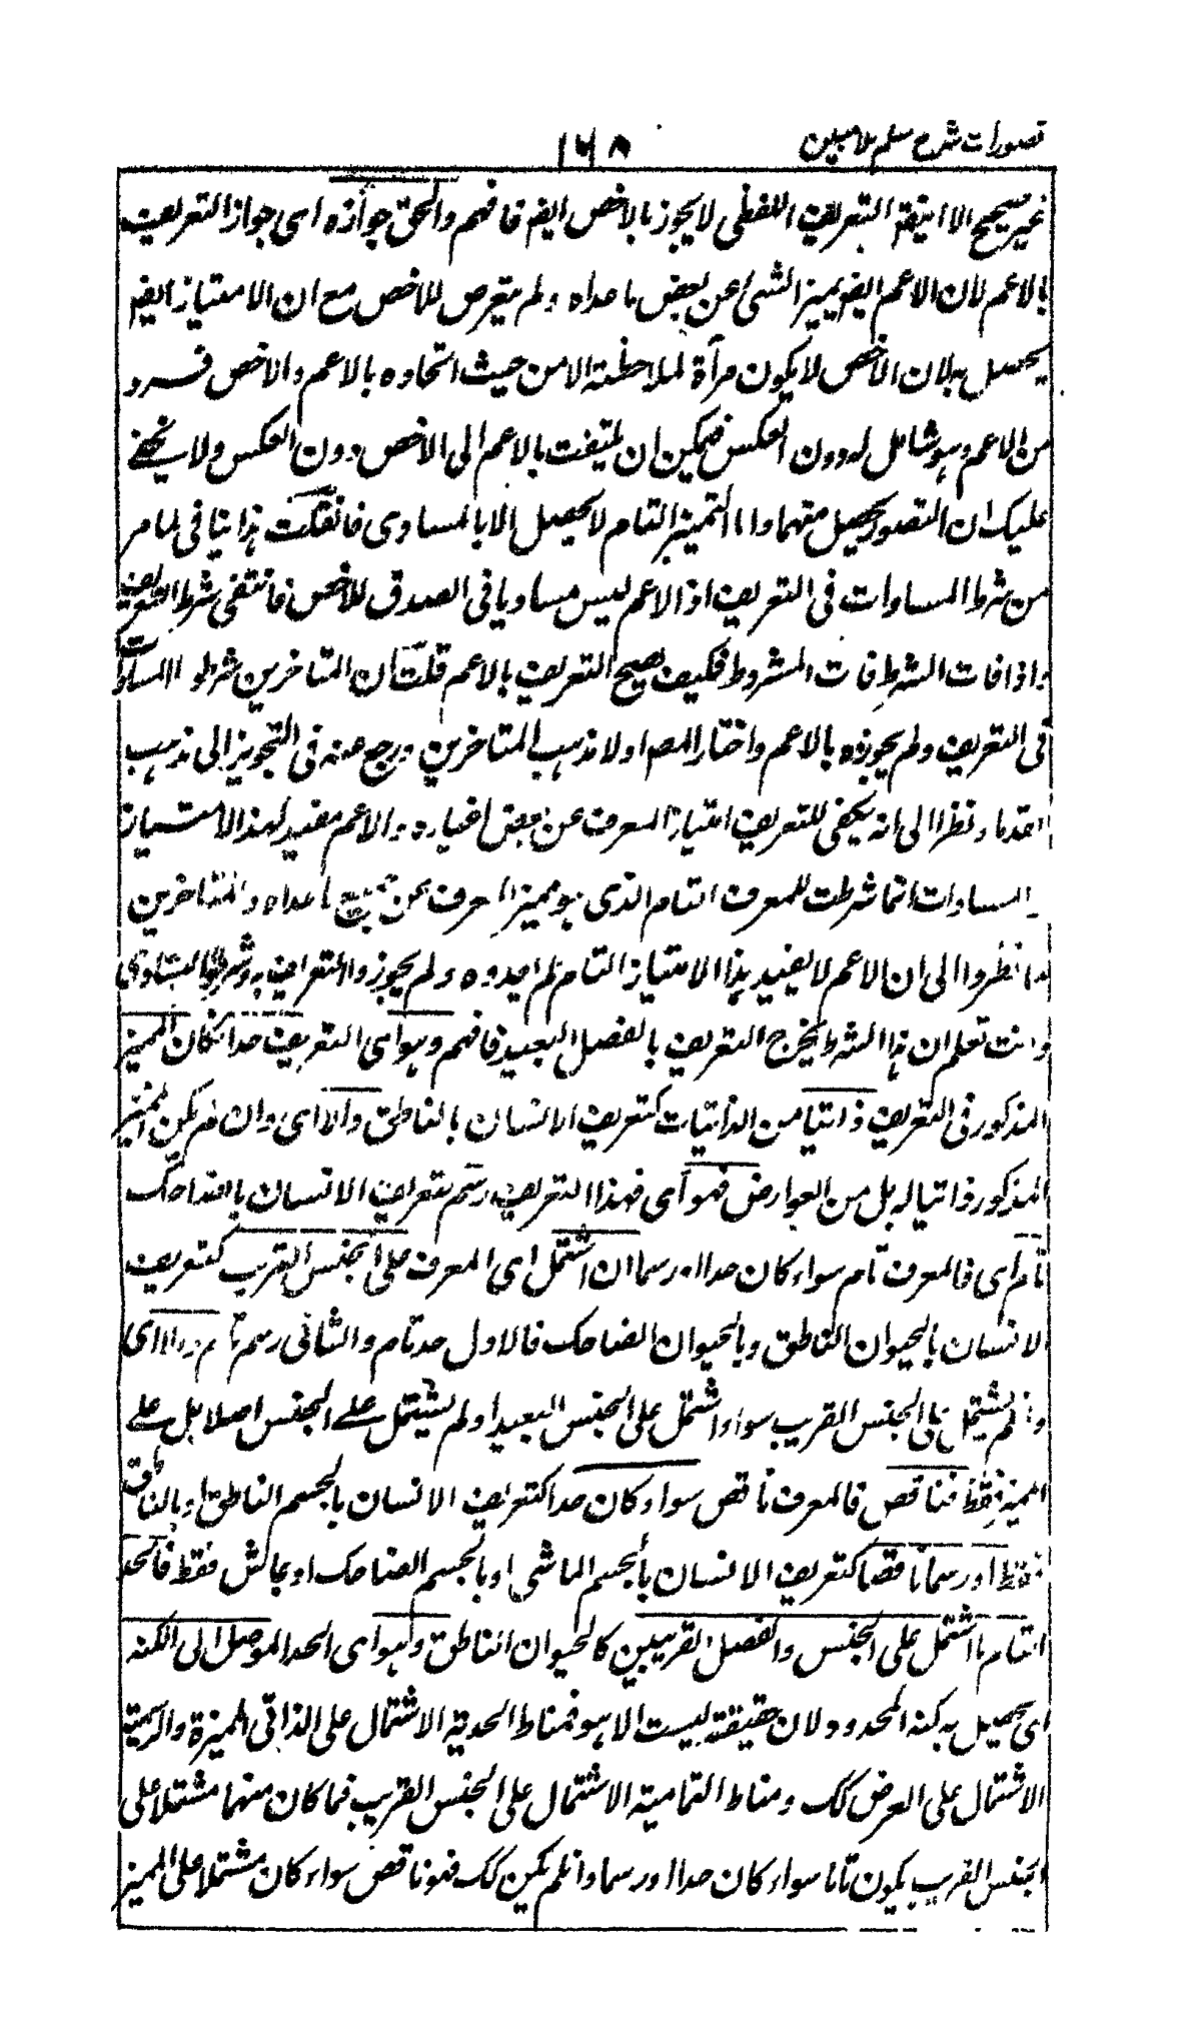 تصورات شرح سلم ملا مبين
١٦٨
غير صحيح الا ان التعريف اللفظى لا يجوز بالاخص ايضا فافهم والحق جوازه اى جواز التعريف
بالاعم لان الاعم ايضا يميز الشئ عن بعض ما عداه ولم يتعرض للاخص مع ان الامتياز ايضا
يحصل به لان الاخص لا يكون مرآة لملاحظته الا من حيث اتحاده بالاعم والاخص فرد
من الاعم وهو شامل له دون العكس فيمكن ان يلتفت بالاعم الى الاخص دون العكس ولا يخفى
عليك ان التصور يحصل منهما واما التميز التام لا يحصل الا بالمساوى فان قلت هذا ينافى لما مر
من شرط المساوات فى التعريف اذ الاعم ليس مساويا فى الصدق للاخص فانتفى شرط التعريف
واذا فات الشرط فات المشروط فكيف يصح التعريف بالاعم قلت ان المتاخرين شرطوا المساوات
فى التعريف ولم يجوزه بالاعم واختار المص اولا مذهب المتاخرين ورجع عنه فى التجويز الى مذهب
القدماء نظرا الى انه يكفى للتعريف امتياز المعرف عن بعض اغياره والاعم مفيد لهذا الامتياز
والمساوات انما شرطت للمعرف التام الذى هو مميز المعرف عن جميع ما عداه والمتاخرين
لما نظروا الى ان الاعم لا يفيد هذا الامتياز التام لم يعدوه ولم يجوزوا التعريف به وشرطوا التساوى
وانت تعلم ان هذا الشرط يخرج التعريف بالفصل البعيد فافهم وهو اى التعريف حد ان كان المميز
المذكور فى التعريف ذاتيا من الذاتيات كتعريف الانسان بالناطق والا اى وان لم يكن المميز
المذكور ذاتيا له بل من العوارض فهو اى فهذا التعريف رسم كتعريف الانسان بالضاحك
تام اى فالمعرف تام سواء كان حدا او رسما ان اشتمل اى المعرف على الجنس القريب كتعريف
الانسان بالحيوان الناطق وبالحيوان الضاحك فالاول حد تام والثانى رسم تام والا اى
وان لم يشتمل على الجنس القريب سواء اشتمل على الجنس البعيد او لم يشتمل على الجنس اصلا بل على
المميز فقط فناقص فالمعرف ناقص سواء كان حدا كتعريف الانسان بالجسم الناطق او بالناطق
فقط او رسما ناقصا كتعريف الانسان بالجسم الماشى او بالجسم الضاحك او بالماش فقط فالحد
التام ما اشتمل على الجنس والفصل القريبين كالحيوان الناطق وهو اى الحد الموصل الى الكنه
اى يحصل به كنه المحدود لان حقيقته ليست الا هو فمناط الحدية الاشتمال على الذاتى المميزة والرسمية
الاشتمال على العرض كك ومناط التمامية الاشتمال على الجنس القريب فما كان منهما مشتملا على
الجنس القريب يكون تاما سواء كان حدا او رسما وان لم يكن كك فهو ناقص سواء كان مشتملا على المميز